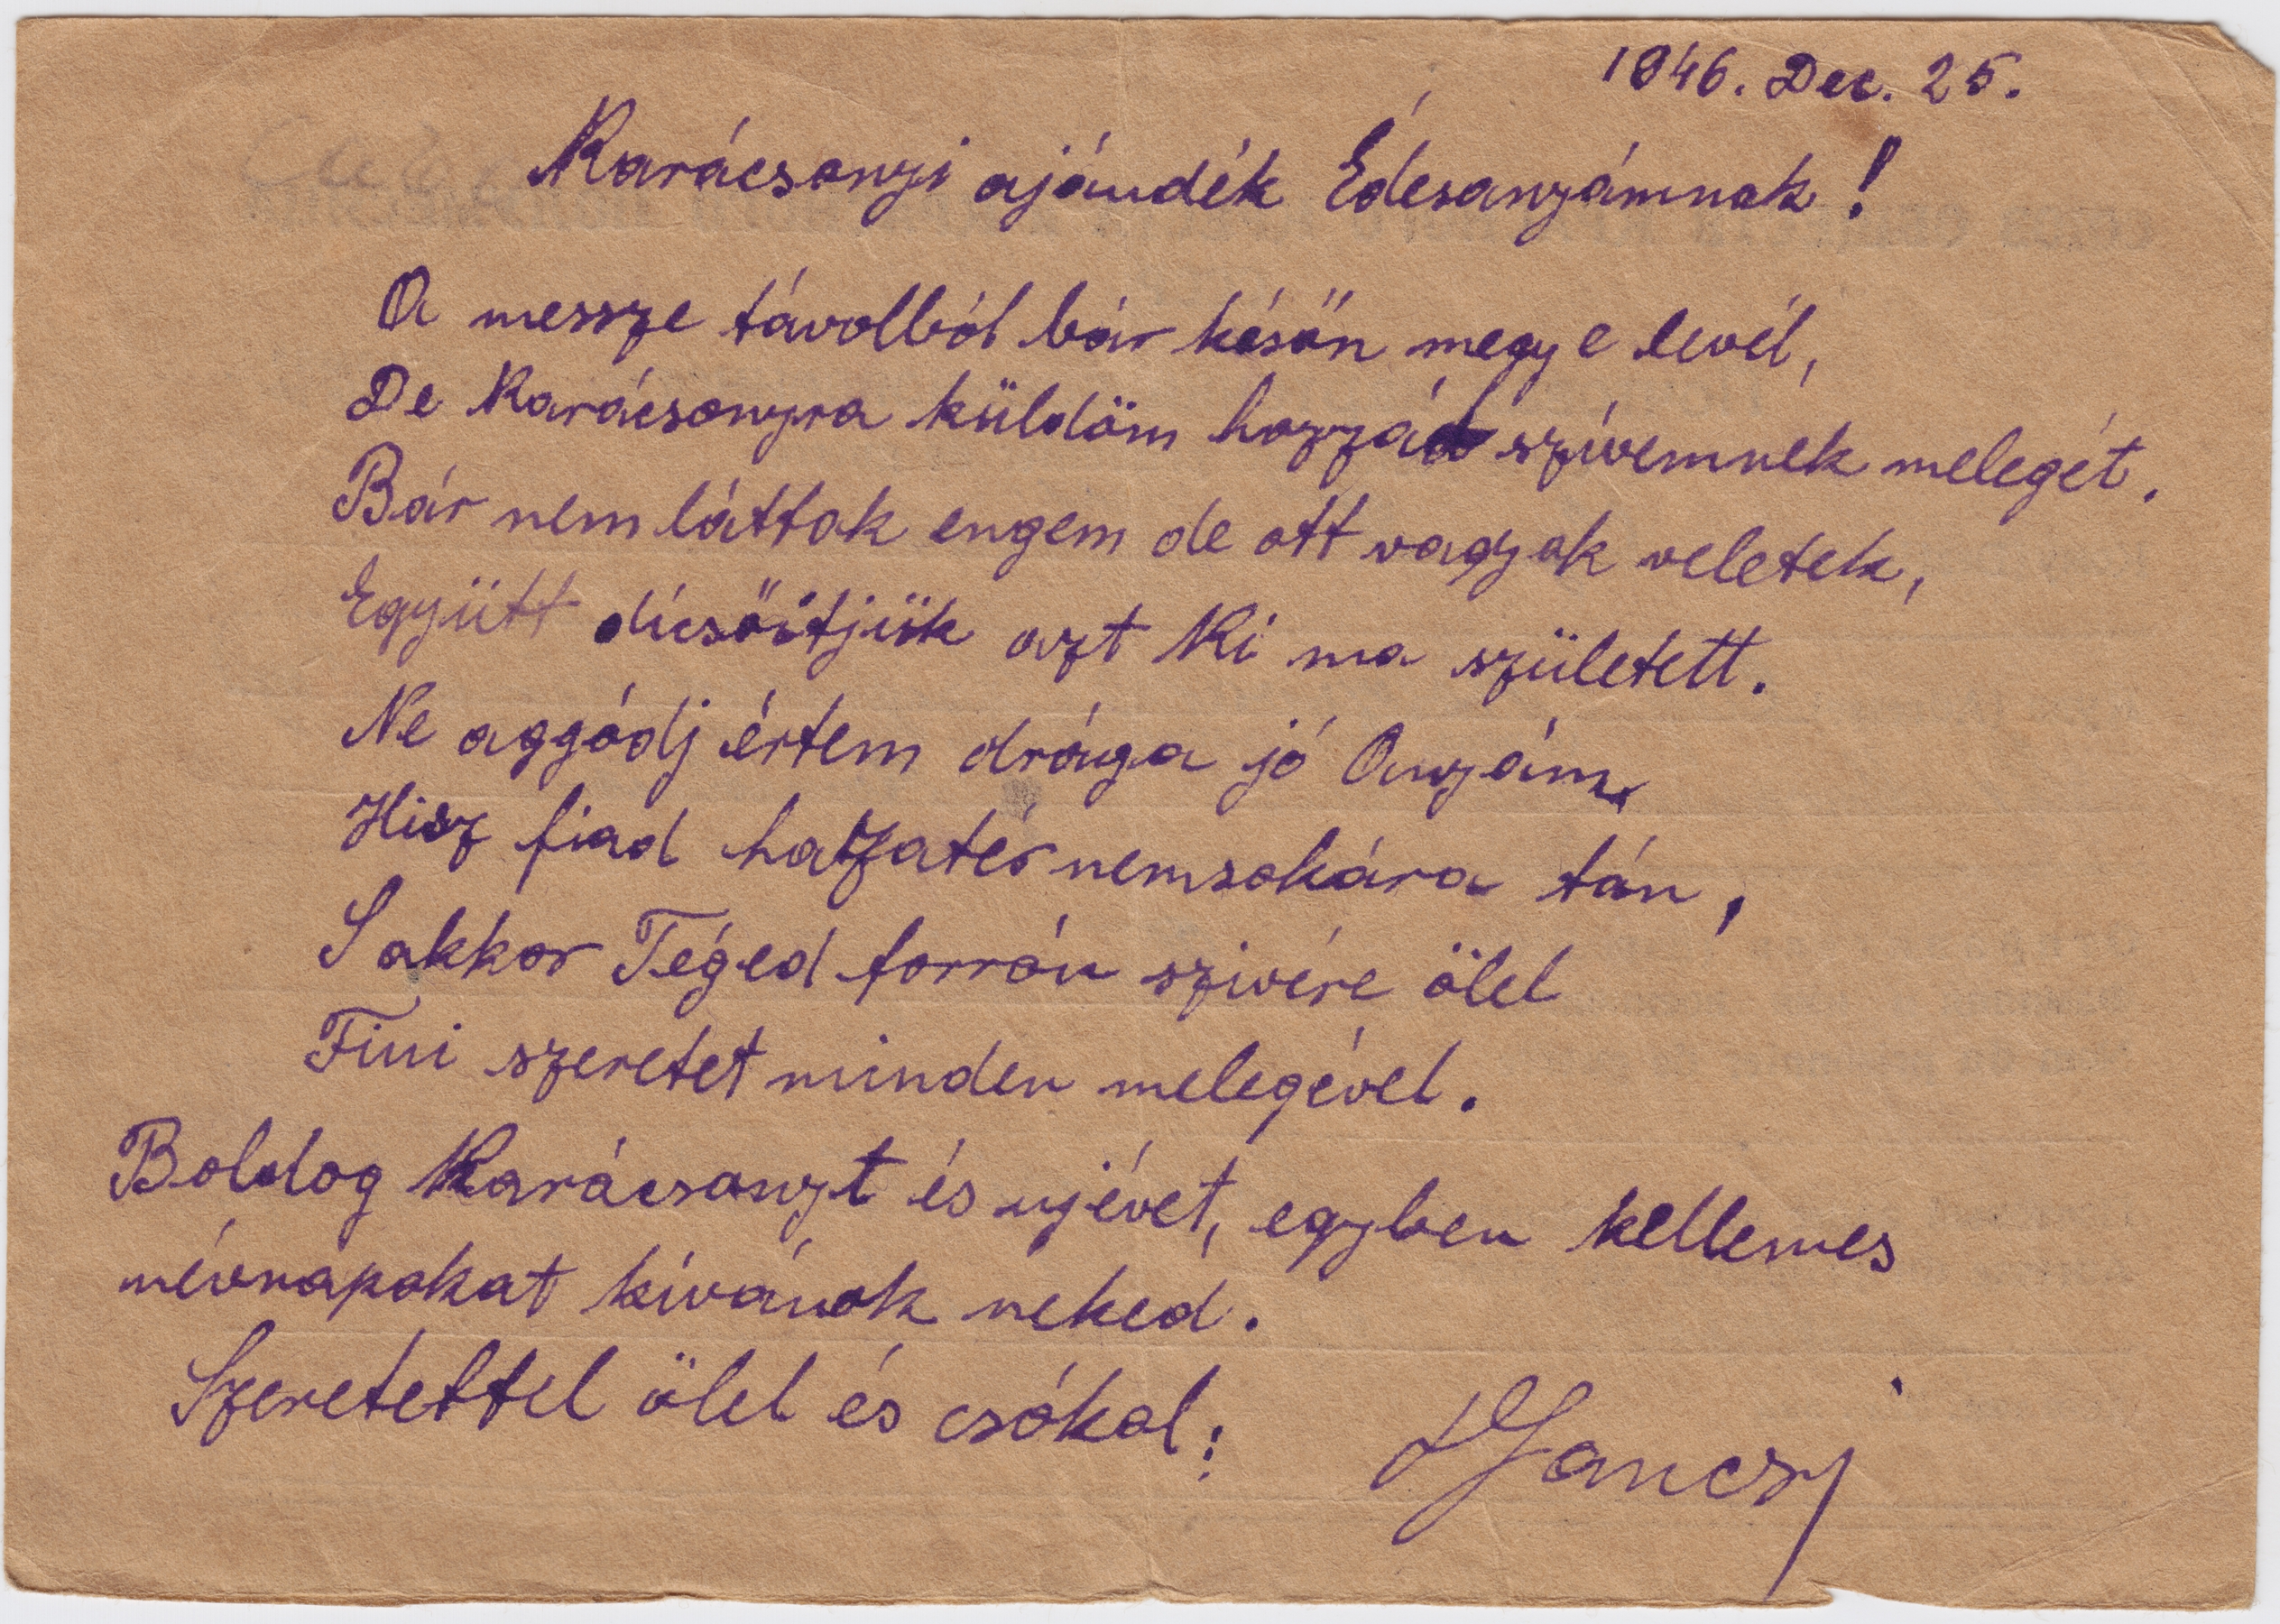 1946. Dec. 25.
Karácsonyi ajándék Édesanyámnak!
A messze távolból bár későn megy e levél,
De Karácsonyra küldöm hozzád szívemnek melegét.
Bár nem láttok engem de ott vagyok veletek,
Együtt dicsőitjük azt Ki ma született.
Ne aggódj értem drága jó Anyám,
Hisz fiad hazatér nemsokára tán,
S akkor Téged forrón szivére ölel
Fiui szeretet minden melegével.
Boldog Karácsonyt és ujévet, egyben kellemes
névnapokat kívánok neked.
Szeretettel ölel és csókol: Jancsi